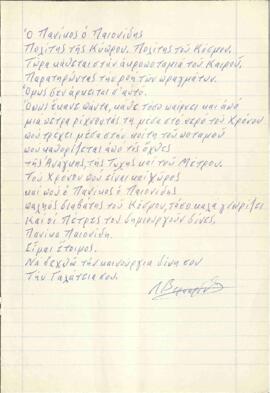 Ὁ Πανίκος ὁ Παιονίδης
Πολίτης τῆς Κύπρου. Πολίτης τοῦ Κόσμου.
Τώρα κάθεται στήν ἀκροποταμιά τοῦ Καιροῦ,
Παρατηρώντας τήν ροή τῶν πραγμάτων.
Ὅμως δέν ἀρκεῖται σ' αὐτό.
Ὅπως ἔκανε πάντα, κάθε τόσο παίρνει καί ἀπό
μια πέτρα ρίχνοντάς τη μέσα στό νερό τοῦ Χρόνου
πού τρέχει μέσα στήν κοίτη τοῦ ποταμοῦ
πού καθορίζεται ἀπό τίς ὄχθες
τῆς Ἀνάγκης, τῆς Τύχης καί τοῦ Μέτρου.
Τοῦ Χρόνου πού εἶναι καί χῶρος
καί πού ὁ Πανίκος ὁ Παιονίδης
παλιός διαβάτης τοῦ Κόσμου, τόσο καλά γνωρίζει
Καί οἱ Πέτρες του δημιουργοῦν δίνες,
Πανίκο Παιονίδη.
Εἶμαι ἕτοιμος.
Νά δεχθῶ τήν καινούργια δίνη σου
Τήν Γαλάτεια σου.